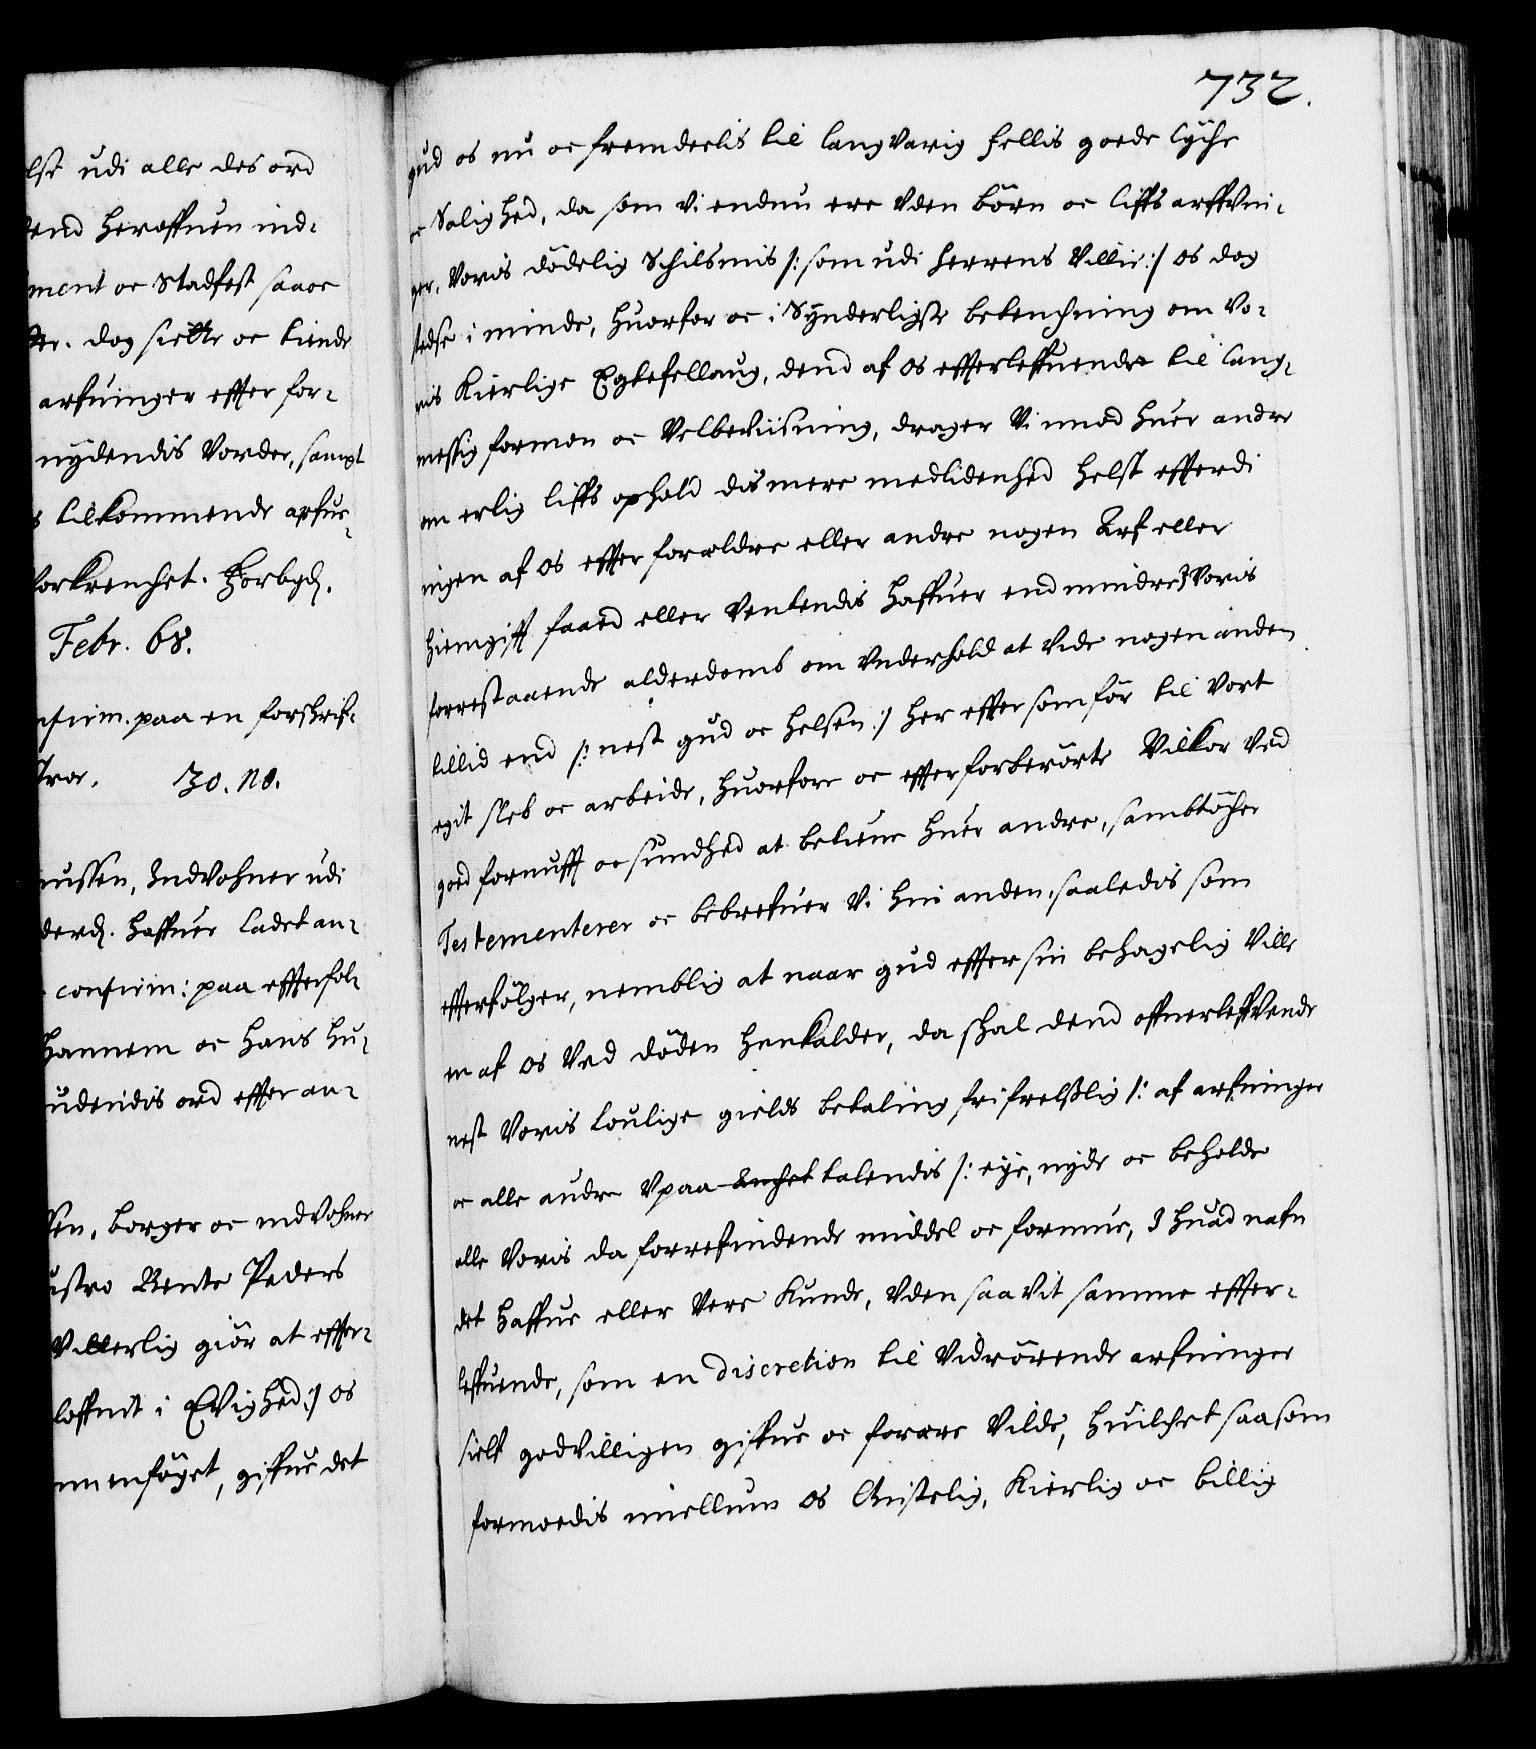 lse udi alle des ord
dend heroffuen ind-
ment oc Stadfest saa oc
dog siette oc tiende
arfuinger effter for-
nydendis vorder, sampt
tilkommende arfue-
forkrenchet.
Febr. 68.
confirm. paa en forschrif-
30. no.
ussen, Indvohner udi
haffuer ladet an-
confirm: paa effterfol-
hannem oc hans hu-
liudendis ord effter an-
sen, borger oc indvohner
ustro Bente Peders
Vitterlig giör at effter-
loffuit i Evighed:/ os
sammenföyet, giffue det
732.
gud os nu oc fremdeelis til langvarig fellis goede lyche
oc Salighed, da som vi endnu ere uden börn oc liffs arffvin-
ger, voris dödelig Schilsmis /: som udi herrens Villie :/ os dog
stedse i minde, huorfor oc i Synderligste betenchning om vo-
ris Kierlige Egtefellaug, dend af os effterleffuende til lang-
messig formon oc Velbeviisning, drager Vi mod huer andre
om erlig liffs ophold dis mere medlidenhed helst effterdi
ingen af os effter forældre eller andre nogen Arf eller
hiemgifft faaed eller Ventendis haffuer end mindre J Voris
forrestaaende alderdoms om Vnderhold at Vide nogen anden
tillid end /: nest gud oc helsen :/ her effter som för til Vort
egit sleb oc arbeide, huorfore oc effter forberörte Vilkor Ved
goed fornufft oc sundhed at betiene huer andre, sambtöcher
Testementerer oc bebrefuer Vi hin anden, saaledis som
effterfölger, nemblig at naar gud effter sin behagelig Ville
en af os Ved döden henkalder, da schal dend offuerleffvende
nest Voris loulige gields betaling fri frelsslig /: af arfuinger
oc alle andre Vpaa Anchet talendis /: eye, nyde oc beholde
alle Voris da forrefindende middel oc formue, J huad nafn
det haffue eller Vere Kunde, Vden saa Vit samme effter-
leffuende, som en discretion til Vidrörende arfuinger
sielf godvilligen giffue oc forære Vilde, huilchet saasom
formoedis imellum os Christelig, Kierlig oc billig